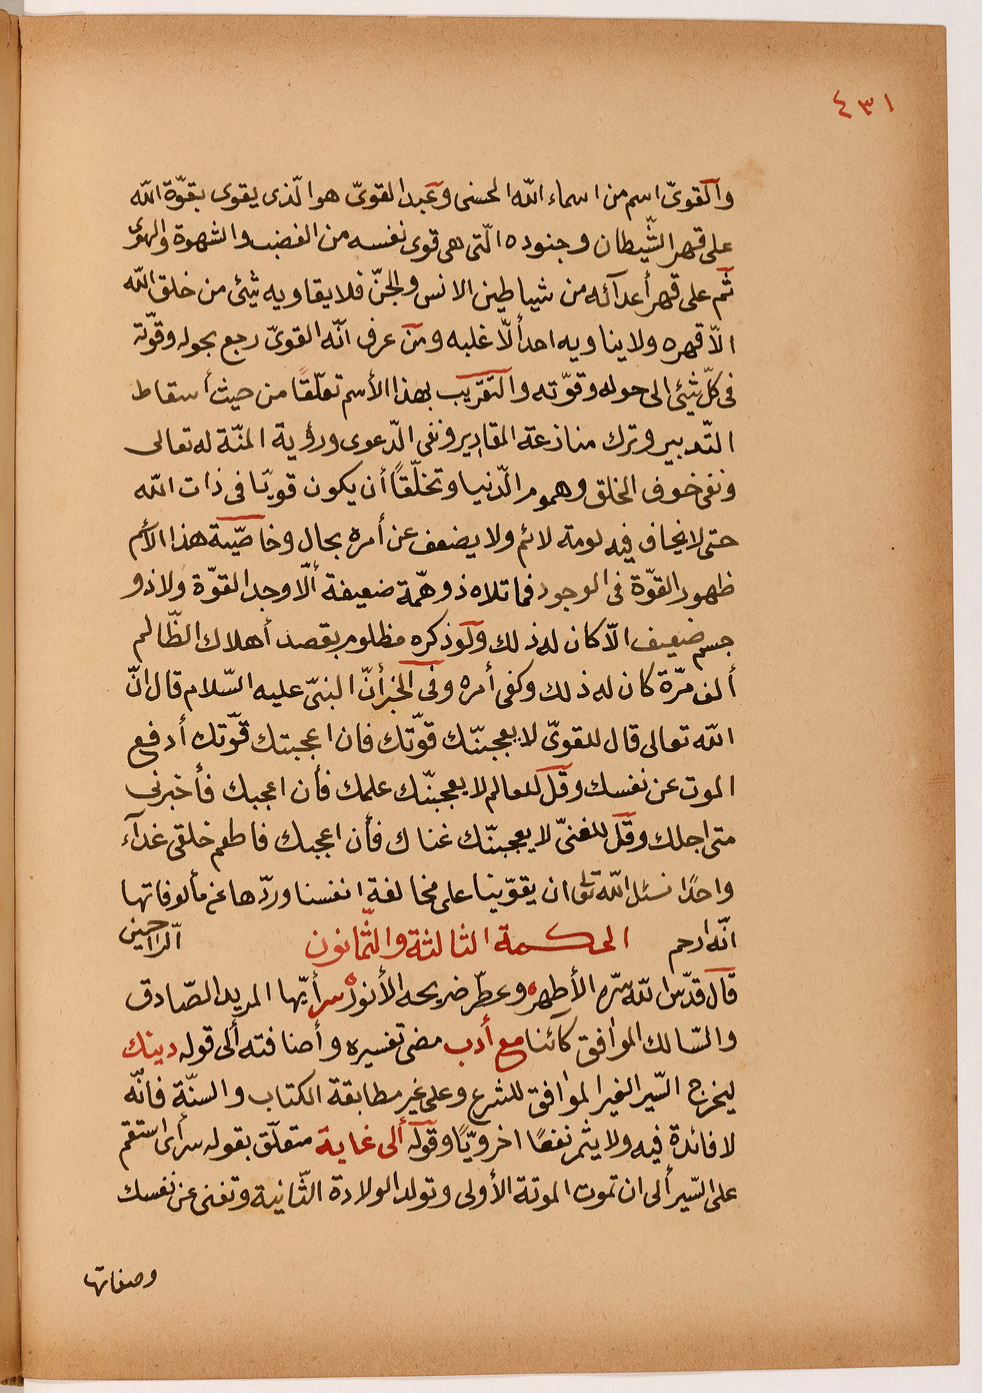 ٤٣١
والقوىّ اسم من اسماء الله الحسنى وعبد القوىّ هو الّذى يقوى بقوّة الله
على قهر الشّيطان وجنوده الّتى هى قوى نفسه من الغضب والشهوة والهوى
ثم على قهر أعدآئه من شياطين الانس والجنّ فلا يقاويه شئ من خلق الله
الاّ قهره ولا يناويه احد ألاّ غلبه ومن عرف انّه القوىّ رجع بحوله وقوّته
فى كلّ شئ الى حوله وقوّته والتقرّب بهذا الأسم تعلّقًا من حيث أسقاط
التّدبير وترك منازعة المقادير ونفى الدّعوى ورؤية المنّة له تعالى
ونفى خوف الخلق وهموم الدّنيا وتخلّقاً أن يكون قويّا فى ذات الله
حتى لا يخاف فيه لومة لائم ولا يضعف عن أمره بحال وخاصّية هذا الأسم
ظهور القوّة فى الوجود فما تلاه ذو همّة ضعيفة ألاّ وجد القوّة ولا ذو
جسم ضعيف الاّ كان له ذلك ولو ذكره مظلوم بقصد أهلاك الظّالم
ألف مرّة كان له ذلك وكفى أمره وفى الخبر أنّ النبىّ عليه السّلام قال انّ
الله تعالى قال للقوىّ لا يعجبنّك قوّتك فان اعجبتك قوّتك أدفع
الموت عن نفسك وقل للعالم لا يعجبنّك علمك فأن اعجبك فأخبرنى
متى اجلك وقل للغنىّ لا يعجبنّك غناك فأن اعجبك فاطعم خلقى غدآء
واحدًا نسئل الله تعالى ان يقوّينا على مخالفة انفسنا وردّها عن مألوفاتها
انّه ارحم الراحمين
الحكمة الثالثة والثّمانون
قال قدّس الله سرّه الأطهر وعطّر ضريحه الأنور سر أيّها المريد الصّادق
والسّالك الموافق كآئنا مع أدب مضى تفسيره وأضافته ألى قوله دينك
ليخرج السّير الغير الموافق للشرع وعلى غير مطابقة الكتاب والسنّة فانّه
لا فائدة فيه ولا يثمر نفعًا اخرويّا وقوله ألى غاية متعلّق بقوله سر أى استقم
على السّير ألى ان تموت الموتة الأولى وتولد الولادة الثّانية وتفنى عن نفسك
وصفاتها